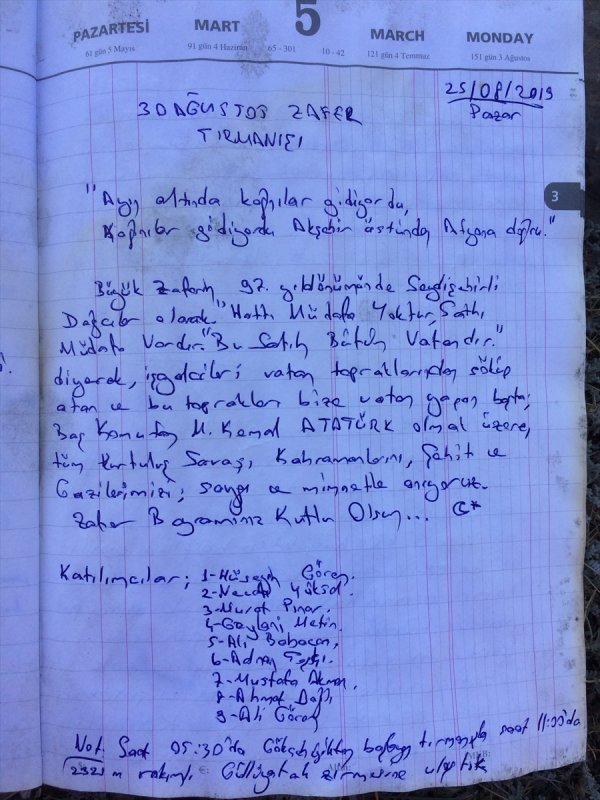 PAZARTESİ MART 5 MARCH MONDAY
61 gün 5 Mayıs 91 gün 4 Haziran 65 - 301 10 - 42 121 gün 4 Temmuz 151 gün 3 Ağustos
25/08/2019
Pazar
30 AĞUSTOS ZAFER
TIRMANIŞI
3
"Ayın altında kağnılar gidiyordu,
Kağnılar gidiyordu Akşehir üstünden Afyona doğru."
Büyük Zaferin 97. yıldönümünde Seydişehirli
Dağcılar olarak "Hattı Müdafa Yoktur, Sathı
Müdafa Vardır. "Bu Satıh Bütün Vatandır."
diyerek, işgalcileri vatan topraklarından söküp
atan ve bu toprakları bize vatan yapan başta;
Baş Komutan M. Kemal ATATÜRK olmak üzere,
tüm Kurtuluş Savaşı Kahramanlarını, Şehit ve
Gazilerimizi; saygı ve minnetle anıyoruz.
Zafer Bayramımız Kutlu Olsun... C*
Katılımcılar; 1-Hüseyin Gören.
2-Necdet Yüksel.
3-Murat Pınar.
4-Geylani Metin.
5-Ali Babacan,
6-Adnan
7-Mustafa Akman.
8-Ahmet Dağlı
9-Ali Gören
Not: Saat 05:30'da başlayan tırmanışla saat 11:00'da
2323 m rakımlı zirvesine ulaştık